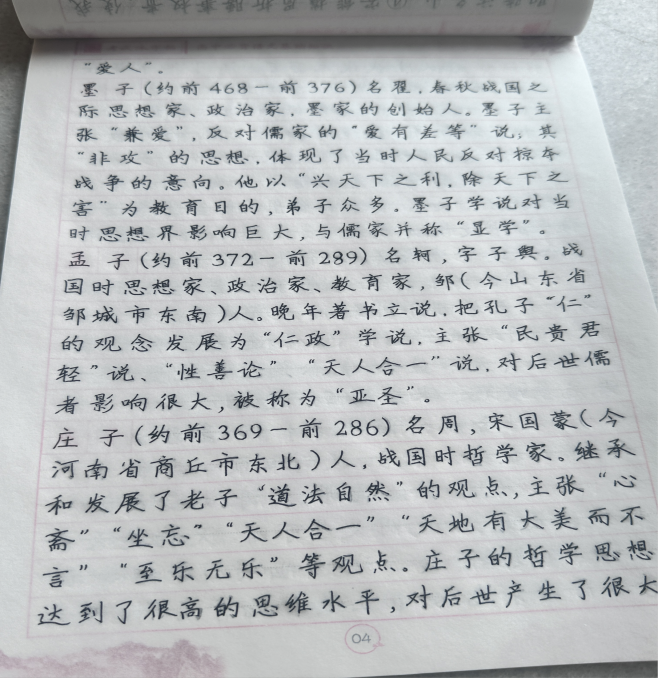 “爱人”。
墨 子(约前468－前376)名翟,春秋战国之
际思想家、政治家,墨家的创始人。墨子主
张“兼爱”,反对儒家的“爱有差等”说；其
“非攻”的思想,体现了当时人民反对掠夺
战争的意向。他以“兴天下之利,除天下之
害”为教育目的,弟子众多。墨子学说对当
时思想界影响巨大,与儒家并称“显学”。
孟 子(约前372－前289)名轲,字子舆。战
国时思想家、政治家、教育家,邹(今山东省
邹城市东南)人。晚年著书立说,把孔子“仁”
的观念发展为“仁政”学说,主张“民贵君
轻”说、“性善论”“天人合一”说,对后世儒
者影响很大,被称为“亚圣”。
庄 子(约前369－前286)名周,宋国蒙(今
河南省商丘市东北)人,战国时哲学家。继承
和发展了老子“道法自然”的观点,主张“心
斋”“坐忘”“天人合一”“天地有大美而不
言”“至乐无乐”等观点。庄子的哲学思想
达到了很高的思维水平,对后世产生了很大
04